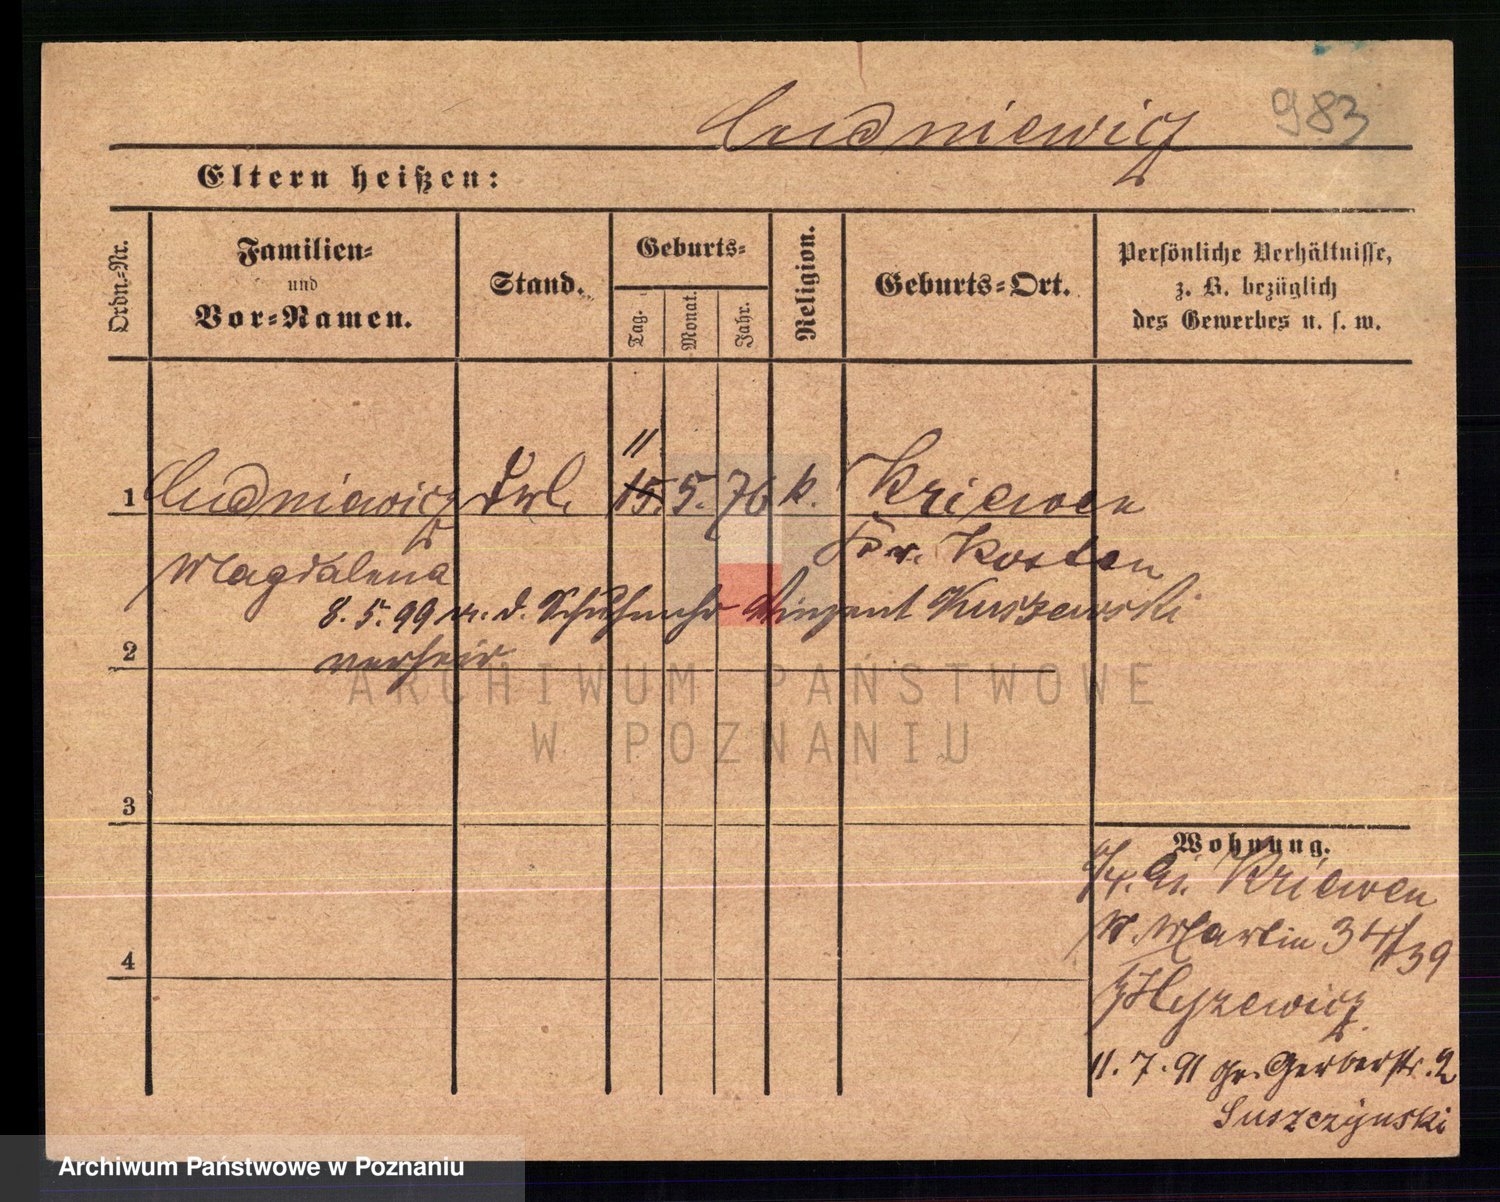 Ludniewicz 983
Eltern heißen:
Ordn.-Nr.
Familien-
und
Vor-Namen.
Stand.
Geburts-
Tag.
Monat.
Jahr.
Religion.
Geburts-Ort.
Persönliche Verhältnisse,
z. B. bezüglich
des Gewerbes u. s. w.
11
1 Ludniewicz Frl. 15. 5. 76 k. Kriewen
Kr. Kosten
Magdalena
8. 5. 99 m. d. Schuhmchr Vinzent Kuszewski
verheir
2
ARCHIWUM PAŃSTWOWE
W POZNANIU
3
Wohnung.
Kriewen
St. Martin 34/39
11. 7. 91 gr. Gerberstr. 2
Suszczynski
4
Archiwum Państwowe w Poznaniu